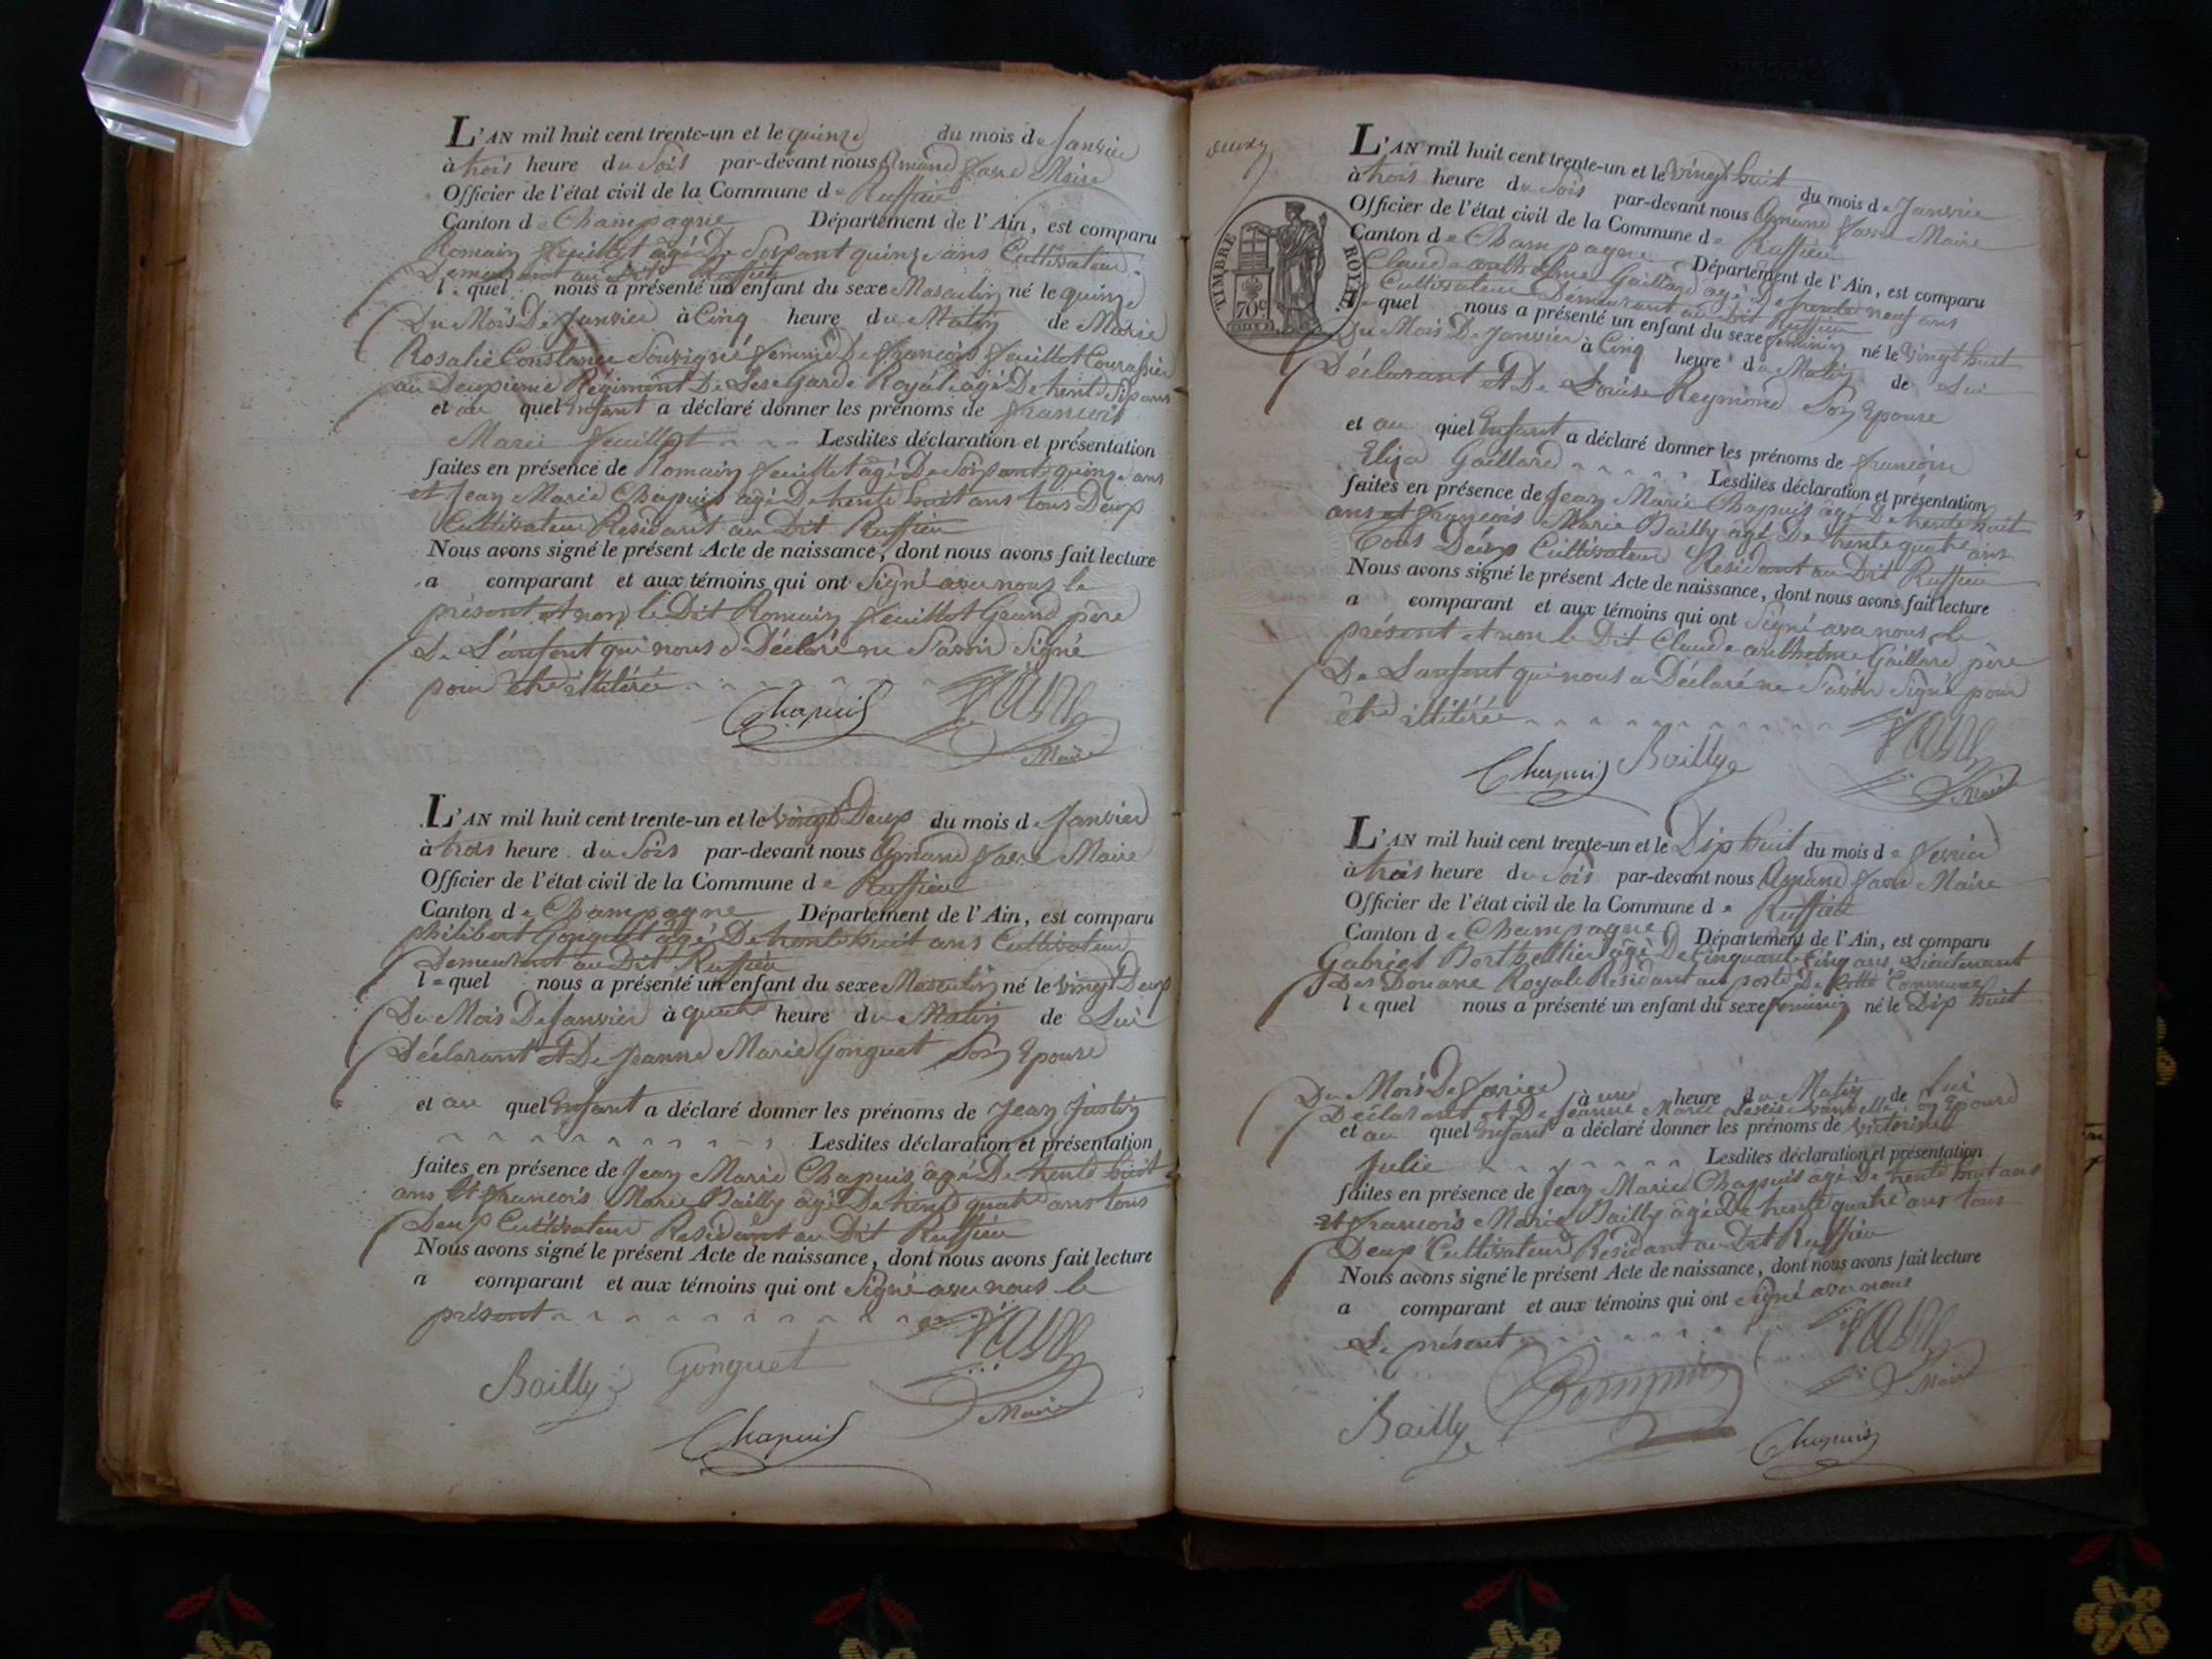 L'AN mil huit cent trente-un et le quinze du mois de Janvier
à trois heure du Soir par-devant nous Amand favre Maire
Officier de l'état civil de la Commune de Ruffieu
Canton de Champagne Département de l'Ain, est comparu
Romain feuillet âgé De Soixant quinze ans Cultivateur
Demeurant au Dit Ruffieu
lequel nous a présenté un enfant du sexe Masculin né le quinze
Du Mois De Janvier à Cinq heure du Matin de Marie
Rosalie Constance femme De françois feuillet
au Deuxieme Régiment De garde Royale âgé De ans
et au quel Enfant a déclaré donner les prénoms de françois
Marie feuillet Lesdites déclaration et présentation
faites en présence de Romain feuillet âgé De Soixant quinze ans
et Jean Marie Chapuis âgé De trente huit ans tous Deux
Cultivateur Residant au Dit Ruffieu
Nous avons signé le présent Acte de naissance, dont nous avons fait lecture
a comparant et aux témoins qui ont Signé avec nous le
présent et non le Dit Romain feuillet Grand père
De L'anfant qui nous a Déclaré ne Savoir Signé
pour être illitérée
Chapuis favre
Maire
L'AN mil huit cent trente-un et le vingt Deux du mois de Janvier
à trois heure du Soir par-devant nous Amand favre Maire
Officier de l'état civil de la Commune de Ruffieu
Canton de Champagne Département de l'Ain, est comparu
philibert Gonguet âgé De trente huit ans Cultivateur
Demeurant au Dit Ruffieu
lequel nous a présenté un enfant du sexe Masculin né le vingt Deux
Du Mois De Janvier à quatre heure du Matin de Lui
Déclarant et De Jeanne Marie Gonguet Son Epouse
et au quel Enfant a déclaré donner les prénoms de Jean Justin
Lesdites déclaration et présentation
faites en présence de Jean Marie Chapuis âgé De trente huit
ans et françois Marie Bailly âgé De trente quatre ans tous
Deux Cultivateur Residant au Dit Ruffieu
Nous avons signé le présent Acte de naissance, dont nous avons fait lecture
a comparant et aux témoins qui ont Signé avec nous le
présent
favre
Bailly Gonguet
Maire
Chapuis
L'AN mil huit cent trente-un et le vingt huit du mois de Janvier
à trois heure du Soir par-devant nous Amand favre Maire
Officier de l'état civil de la Commune de Ruffieu
Canton de Champagne Département de l'Ain, est comparu
Claude anthelme Gaillard âgé De trente neuf ans
Cultivateur Demeurant au Dit Ruffieu
lequel nous a présenté un enfant du sexe feminin né le vingt huit
Du Mois De Janvier à Cinq heure du Matin de Lui
Déclarant et De Louise Reymond Son Epouse
TIMBRE ROYAL
70c
et au quel Enfant a déclaré donner les prénoms de françoise
Eliza Gaillard Lesdites déclaration et présentation
faites en présence de Jean Marie Chapuis âgé De trente huit
ans et françois Marie Bailly âgé De trente quatre ans
Tous Deux Cultivateur Residant au Dit Ruffieu
Nous avons signé le présent Acte de naissance, dont nous avons fait lecture
a comparant et aux témoins qui ont Signé avec nous le
présent et non le Dit Claude anthelme Gaillard père
De L'anfant qui nous a Déclaré ne Savoir Signé pour
être illitérée
favre
Chapuis Bailly
Maire
L'AN mil huit cent trente-un et le Dix huit du mois de fevrier
à trois heure du Soir par-devant nous Amand favre Maire
Officier de l'état civil de la Commune de Ruffieu
Canton de Champagne Département de l'Ain, est comparu
Gabriel Berthellier âgé De Cinquante Cinq ans Lieutenant
Des Douane Royale Residant au poste De Commune
lequel nous a présenté un enfant du sexe feminin né le Dix huit
Du Mois De fevrier à une heure du Matin de Lui
Déclarant et De Jeanne Marie Son Epouse
et au quel Enfant a déclaré donner les prénoms de victorine
Julie Lesdites déclaration et présentation
faites en présence de Jean Marie Chapuis âgé De trente huit ans
et françois Marie Bailly âgé De trente quatre ans tous
Deux Cultivateur Residant au Dit Ruffieu
Nous avons signé le présent Acte de naissance, dont nous avons fait lecture
a comparant et aux témoins qui ont Signé avec nous
Le présent
favre
Maire
Bailly
Chapuis